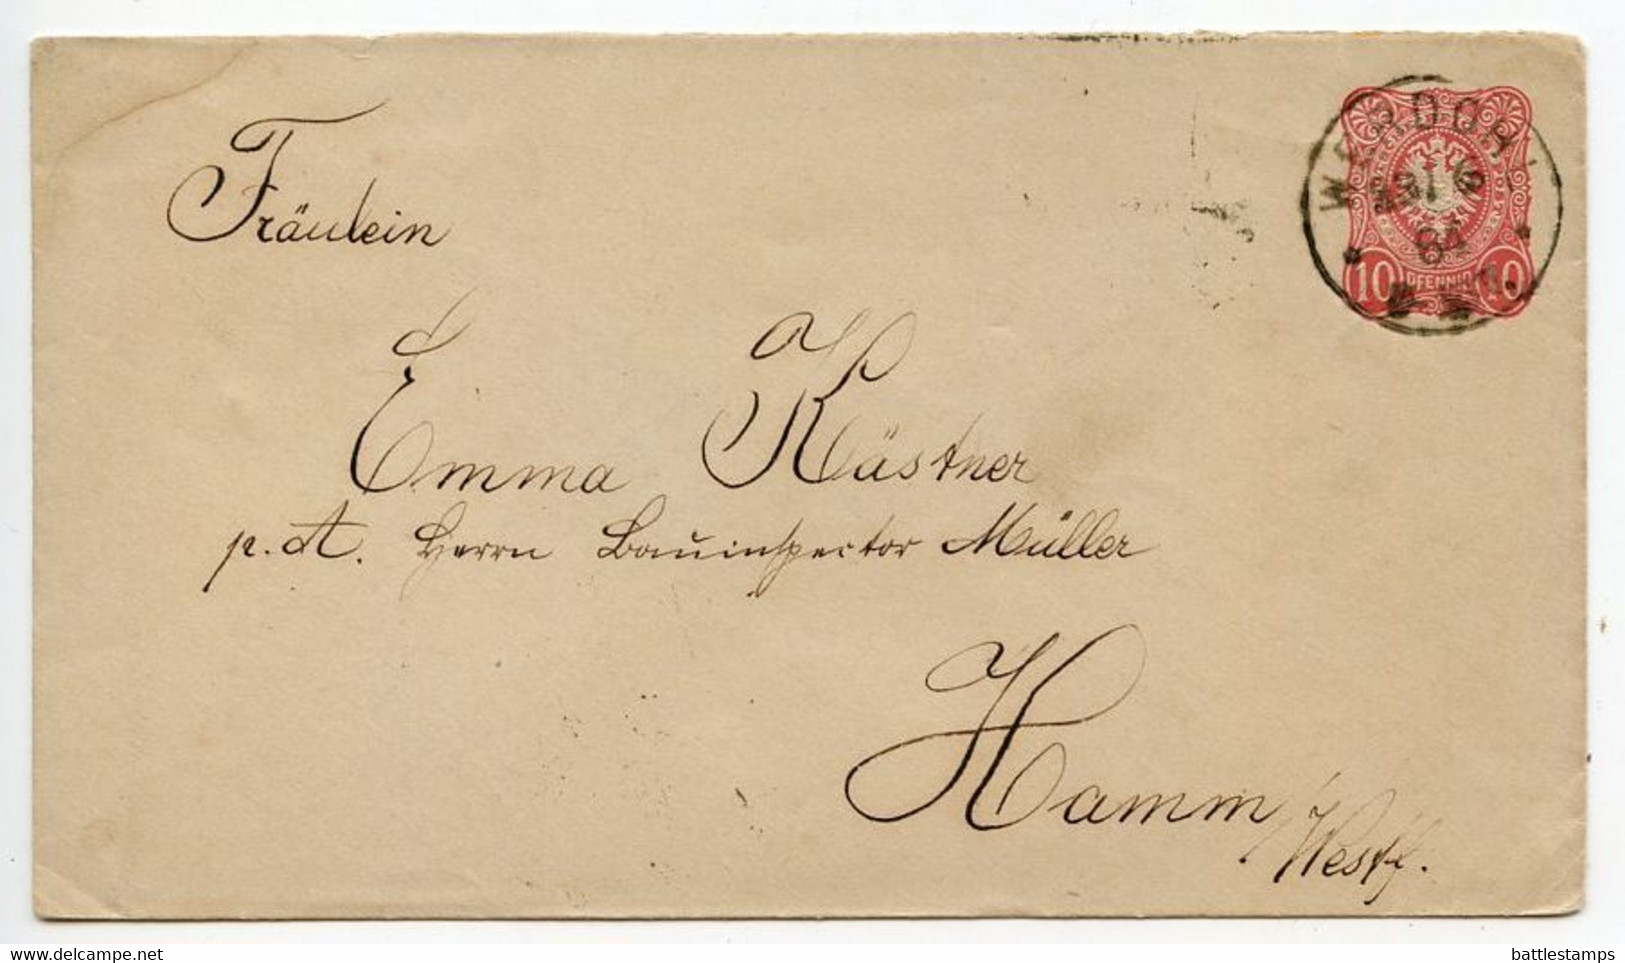 WERDOHL
84
10 PFENNIG 10
Fräulein
Emma Kästner
p. A. Herrn Bauinspector Müller
Hamm/Westf.
delcampe.net
battlestamps